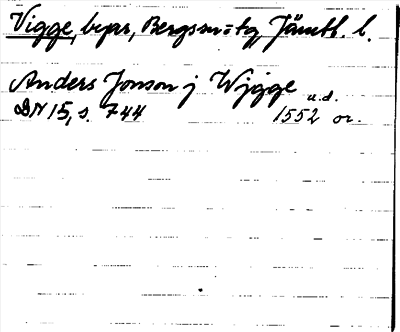 Vigge, byar, Bergs sn o tg Jämtl. l.
Anders Jonson j Wjgge u.d.
DN 15, s. 744 1552 or.